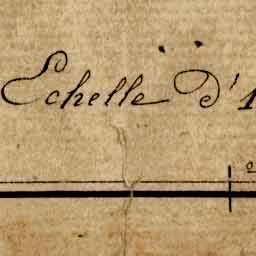 Echelle d'1
o